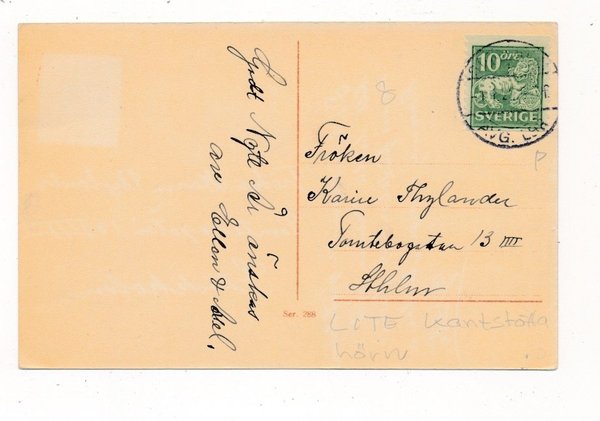 Godt Nytt År önskas
av Ellen & Axel.
10 öre
SVERIGE
AVG.
8
P
Fröken
Karin Thylander
Tomtebogatan 13 IIII
Sthlm
Ser. 288
LITE kantstötta
hörn